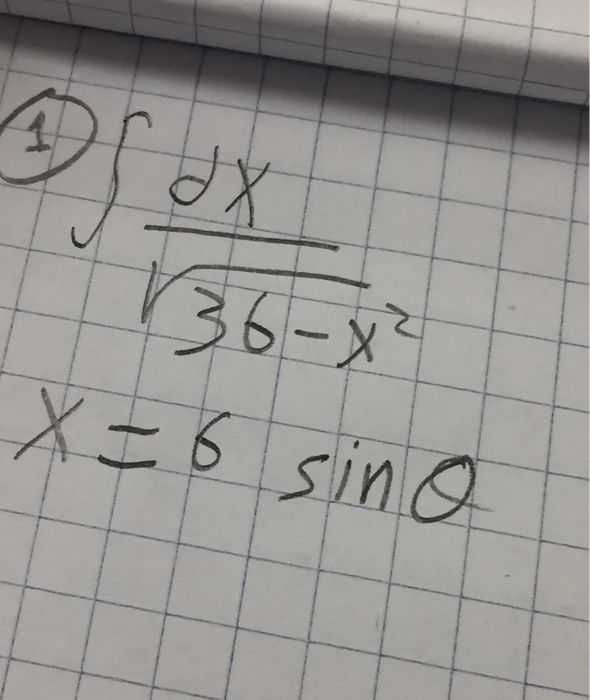 ① ∫ dx / √(36 - x²)
x = 6 sin θ